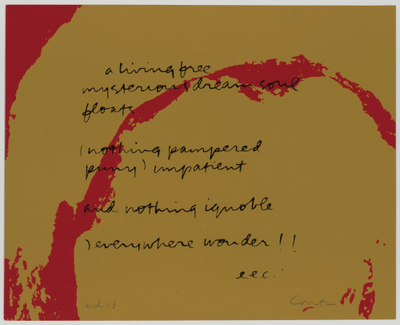 a living free
mysterious dream soul
floats
(nothing pampered
puny) impatient
and nothing ignoble
)everywhere wonder!!
e.e.c.